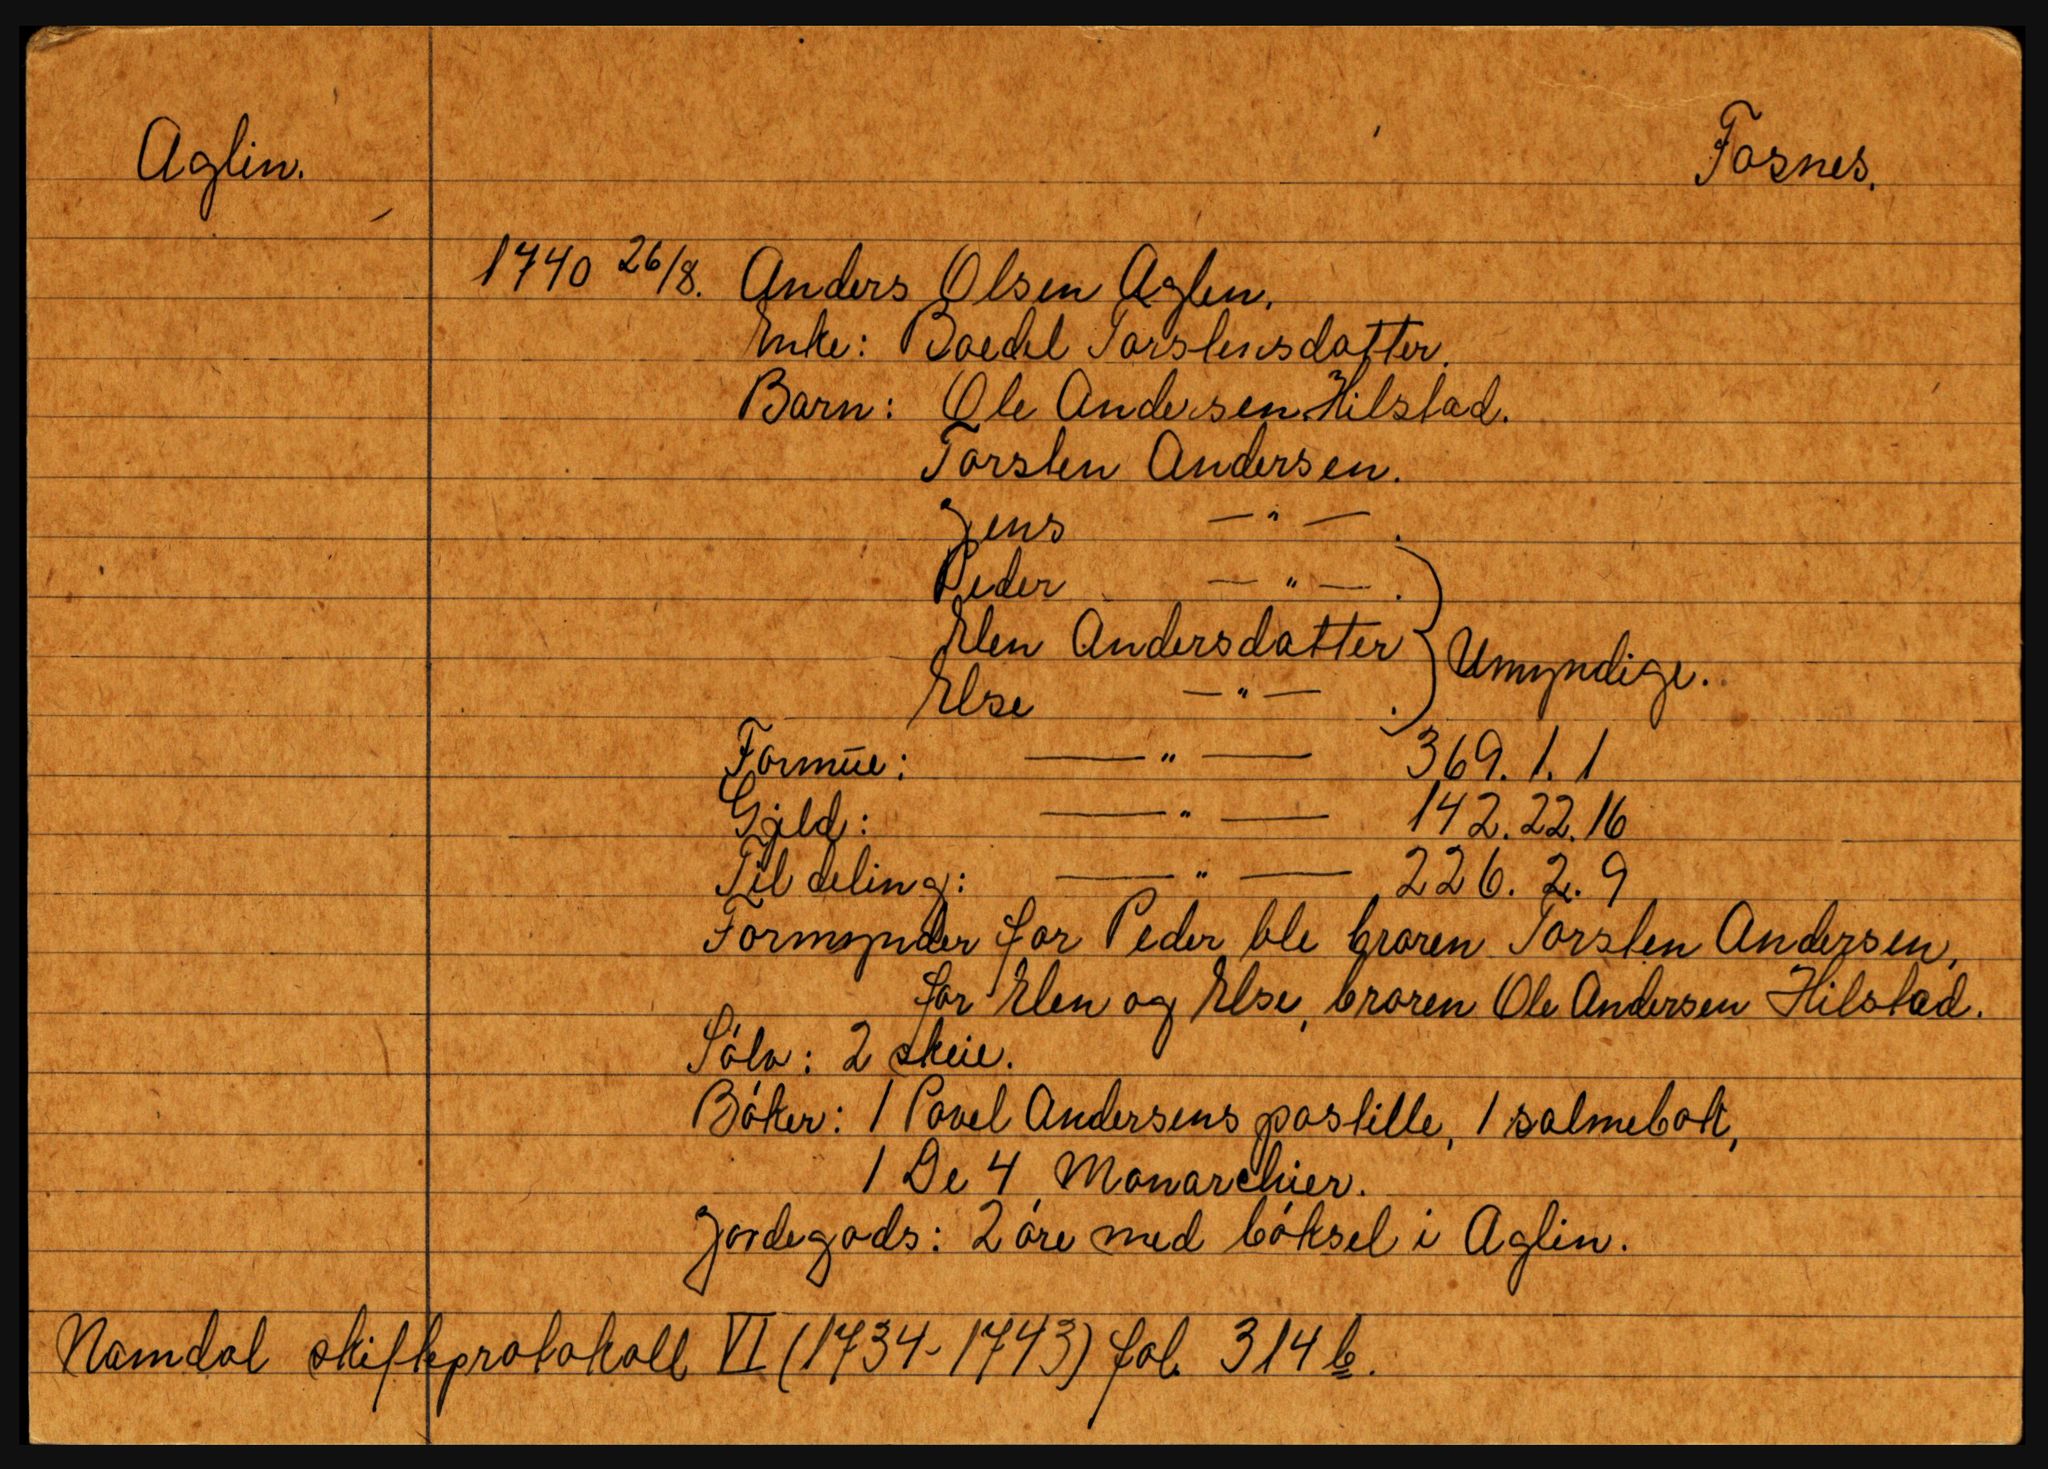 Aglin. Fosnes.
1740 26/8. Anders Olsen Aglen.
Enke: Boedel Torstensdatter.
Barn: Ole Andersen Hilstad.
Torsten Andersen.
Jens — " — .
Peder — " — .
Elen Andersdatter } Umyndige.
Else — " — .
Formüe: — " — 369. 1. 1
Gjeld: — " — 142. 22. 16
Til deling: — " — 226. 2. 9
Formynder for Peder ble broren Torsten Andersen,
for Elen og Else, broren Ole Andersen Hilstad.
Sólv: 2 skeie.
Bóker: 1 Povel Andersens postille, 1 salmebok,
1 De 4 Monarchier.
Jordegods: 2 óre med bóksel i Aglin.
Namdal skifteprotokoll VI (1734-1743) fol. 314 b.